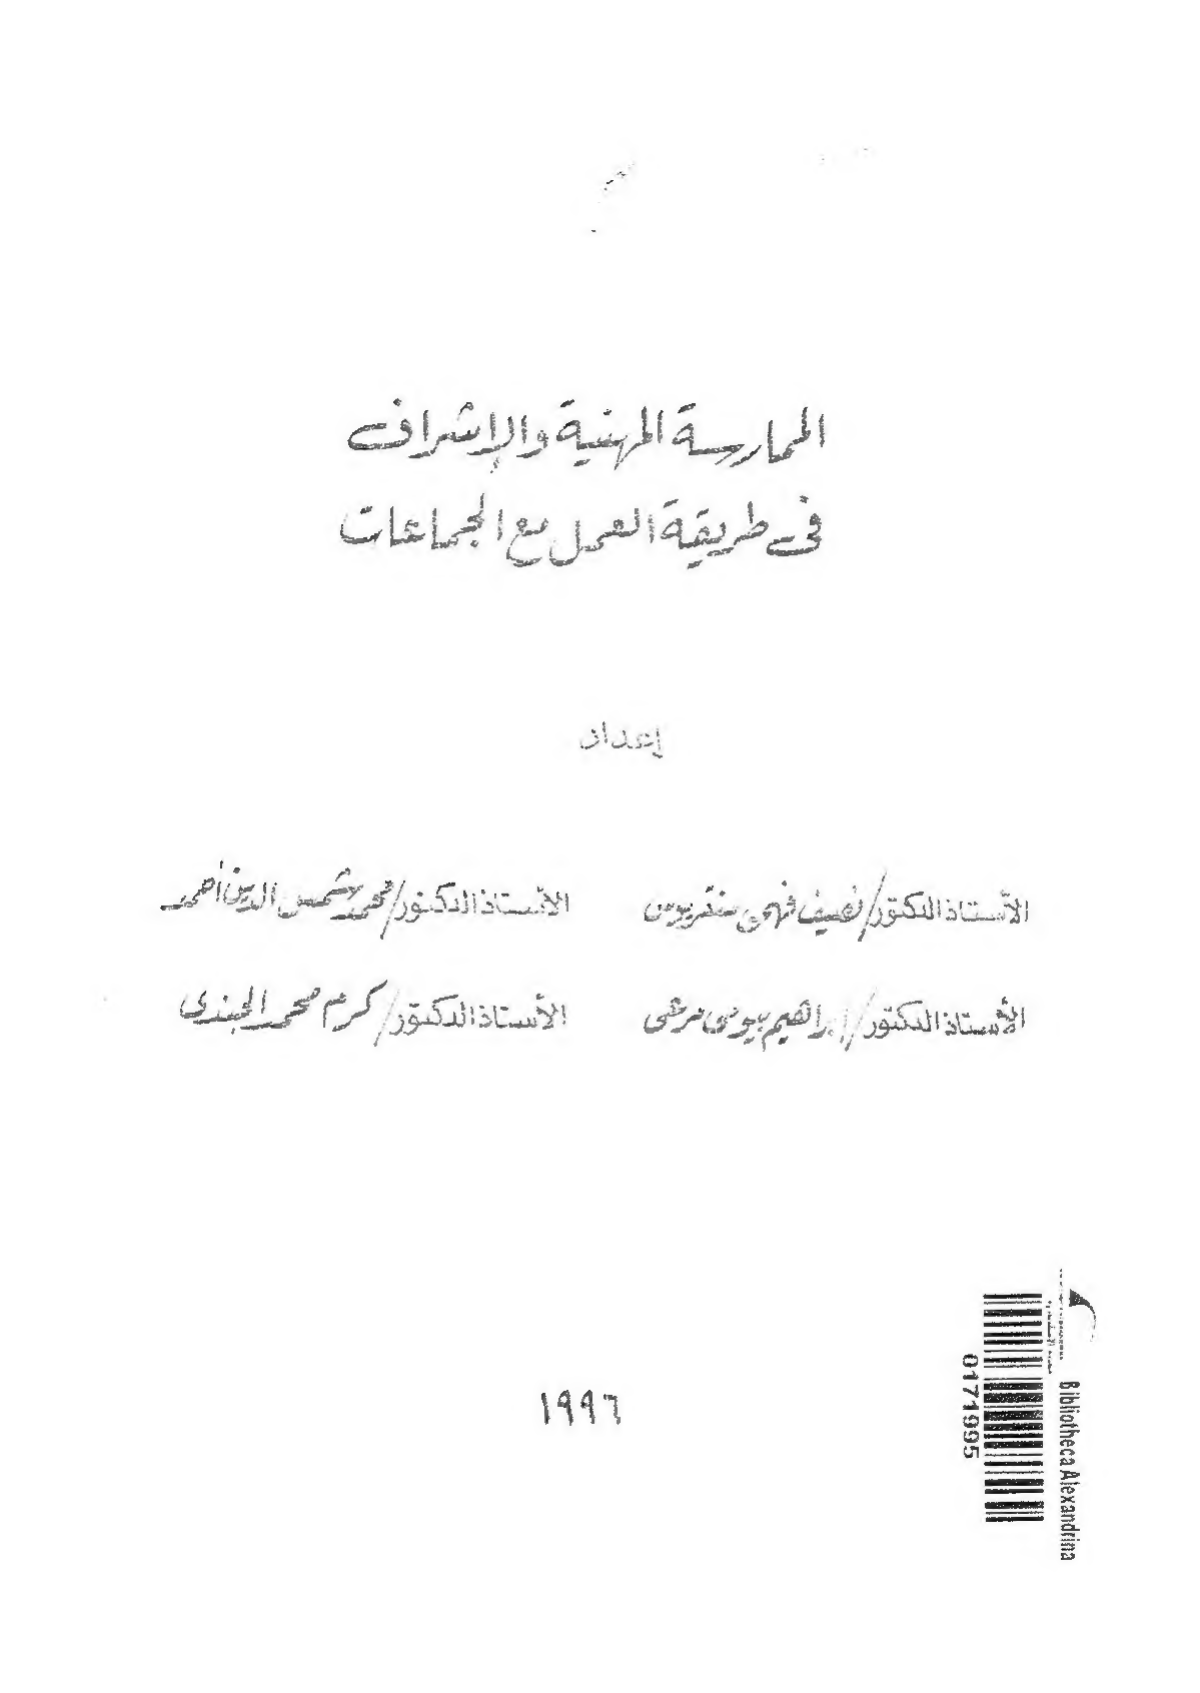 الممارسة المهنية والإشراف
فى طريقة العمل مع الجماعات
إعداد
الأستاذ الدكتور/ نصيف فهمى منقريوس
الأستاذ الدكتور/ محمد شمس الدين أحمد
الأستاذ الدكتور/ إبراهيم بيومى مرعى
الأستاذ الدكتور/ كرم محمد الجندى
١٩٩٦
0171995
Bibliotheca Alexandrina